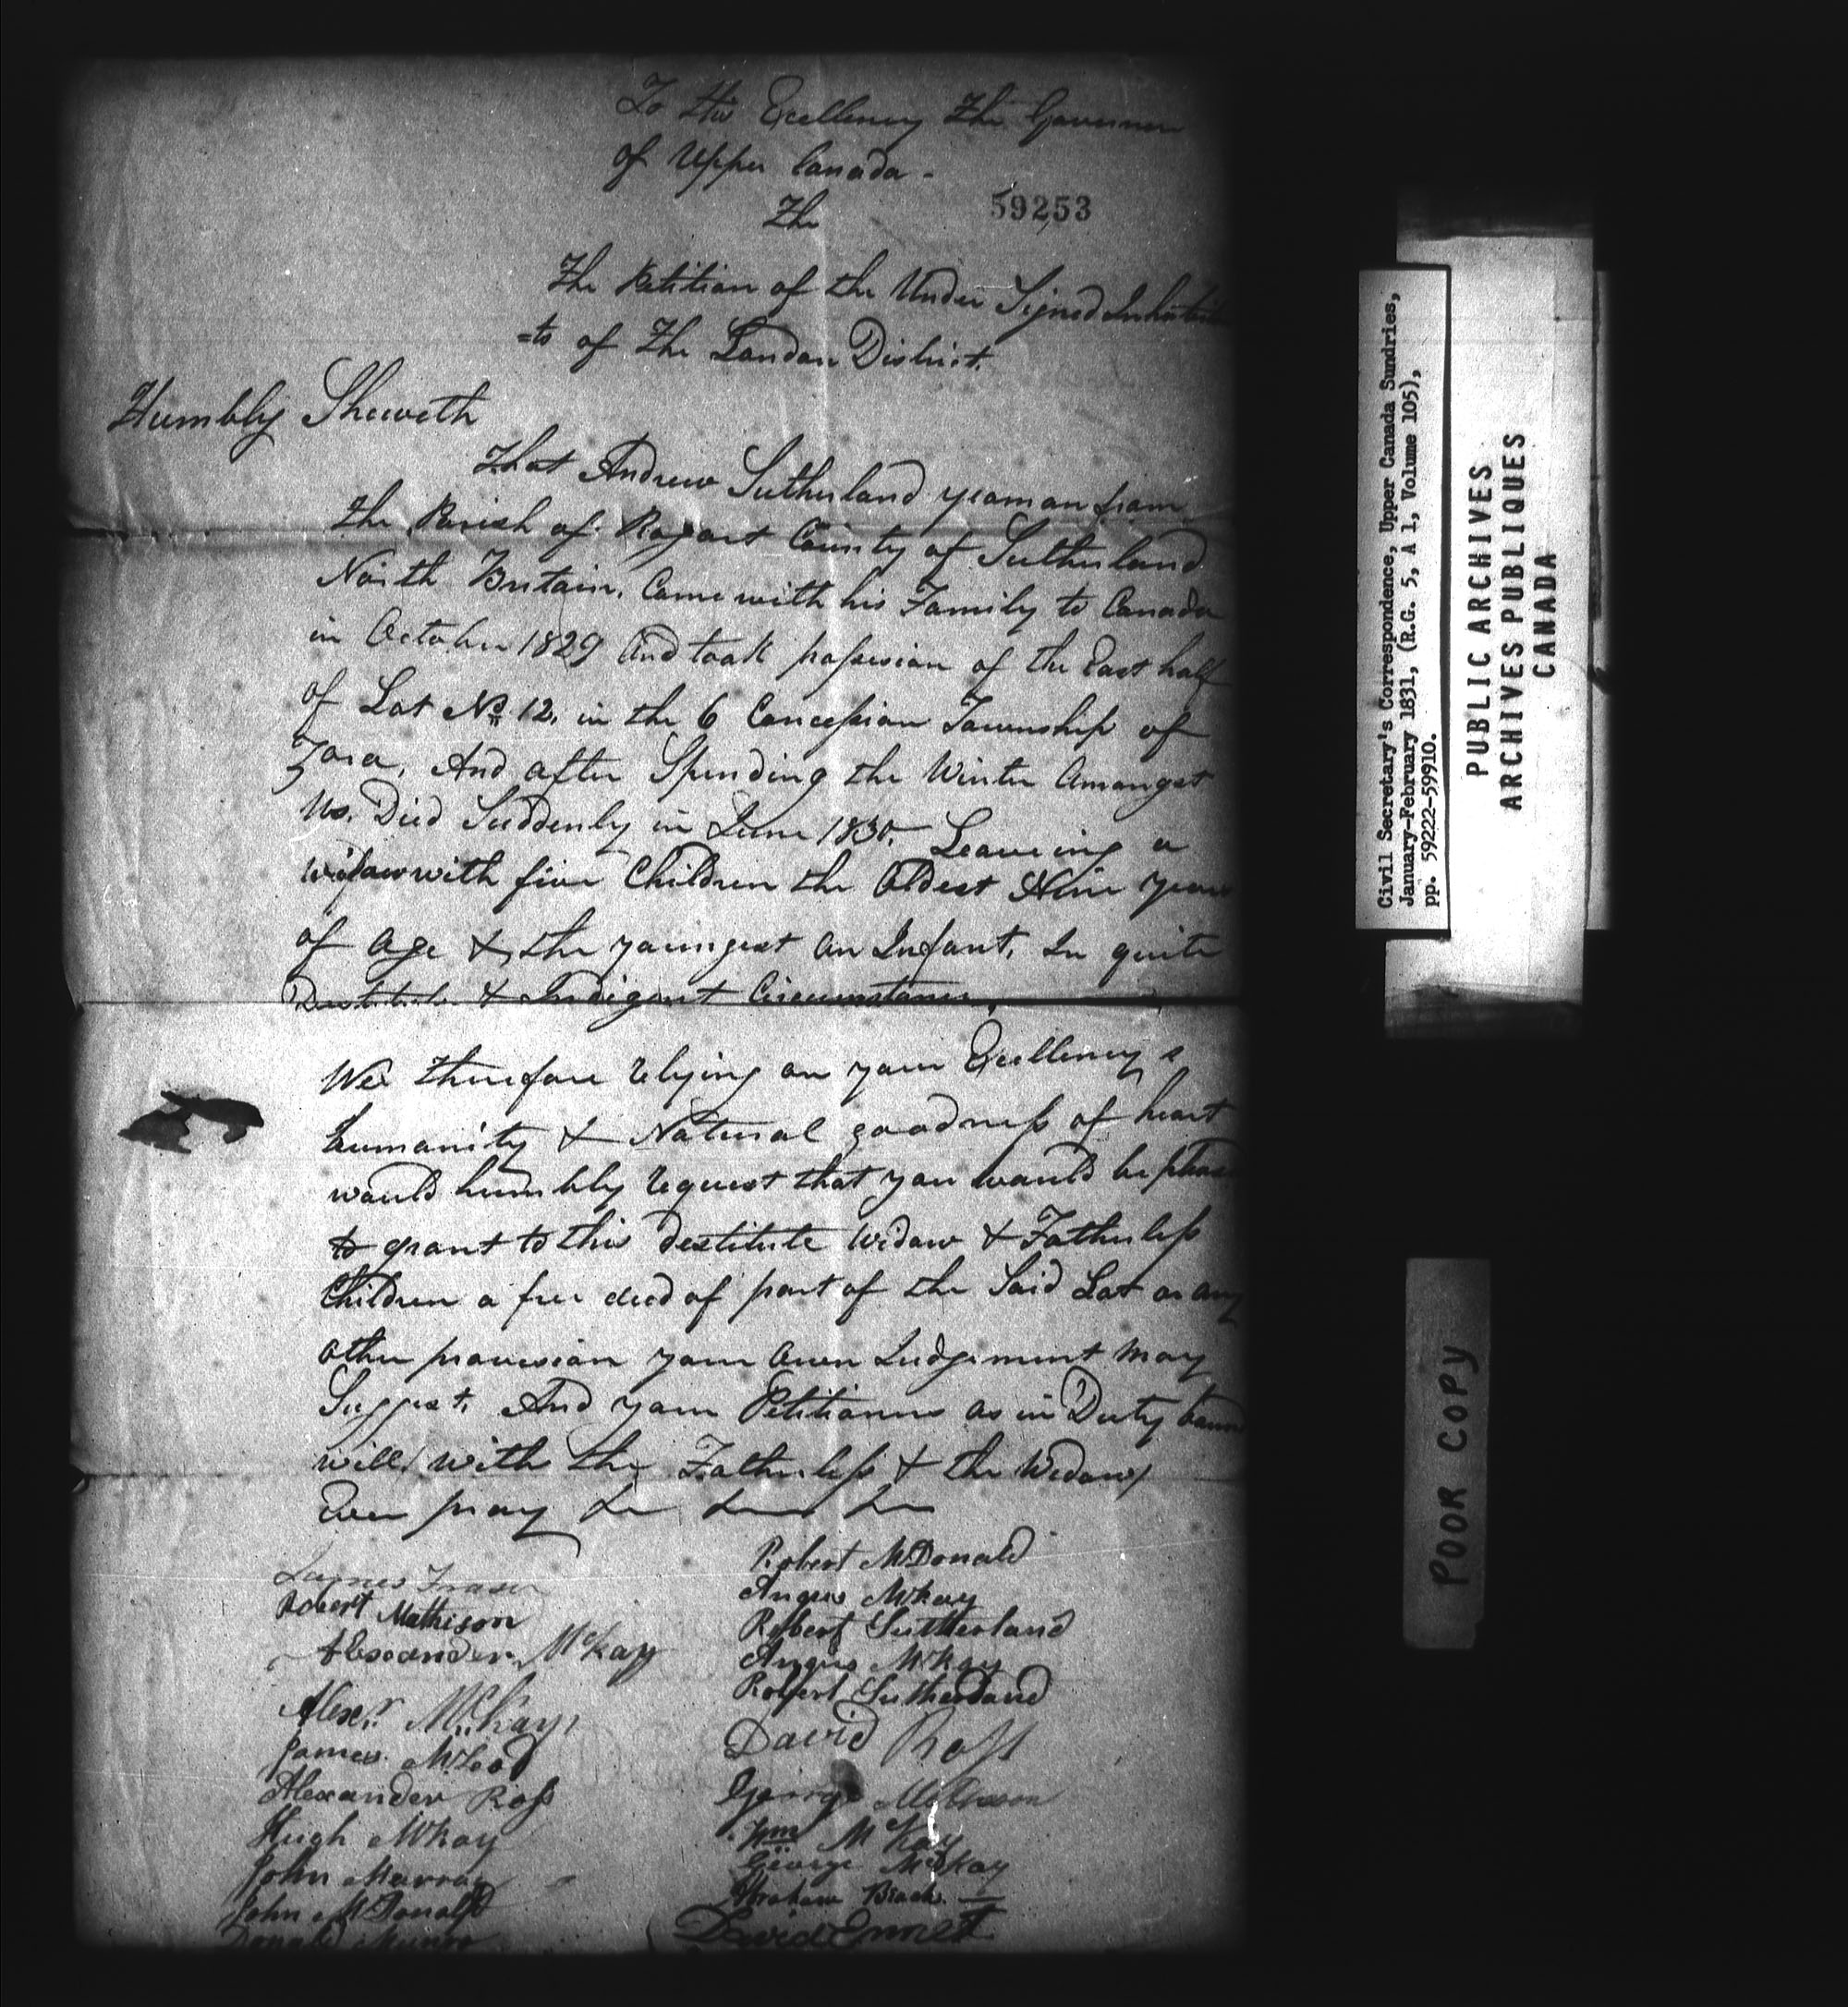 To His Excellency The Governor
of Upper Canada -
59253
The
The Petition of the Under Signed Inhabitan
=ts of The London District.
Humbly Sheweth
That Andrew Sutherland yeoman from
the Parish of Rogart County of Sutherland
North Britain. Came with his Family to Canada
in October 1829 And took possession of the East half
of Lot No. 12. in the 6 Concession Township of
Zora. And after Spending the Winter Amongst
Us. Died Suddenly in June 1830. Leaveing a
widow with five Children the Oldest Nine years
of age & the youngest an Infant. In quite
Destitute & Indigent Circumstances.
We therefore relying on your Excellency's
humanity & Natural goodness of heart
would humbly request that you would be pleased
to grant to this destitute Widow & Fatherless
Children a free deed of part of the Said Lot or any
other provision your Own Judgement May
Suggest. And your Petitioners as in Duty bound
will with the Fatherless & the Widow
Ever pray
James Fraser
Robert Mathison
Alexander McKay
Alexr. McKay
James McLeod
Alexander Ross
Hugh McKay
John Murray
John McDonald
Donald Munro
Robert McDonald
Angus McKay
Robert Sutherland
Angus McKay
Robert Sutherland
David Ross
George
Wm McKay
George McKay
Abraham
David
Civil Secretary's Correspondence, Upper Canada Sundries,
January-February 1831, (R.G. 5, A 1, Volume 105),
pp. 59222-59910.
PUBLIC ARCHIVES
ARCHIVES PUBLIQUES
CANADA
POOR COPY